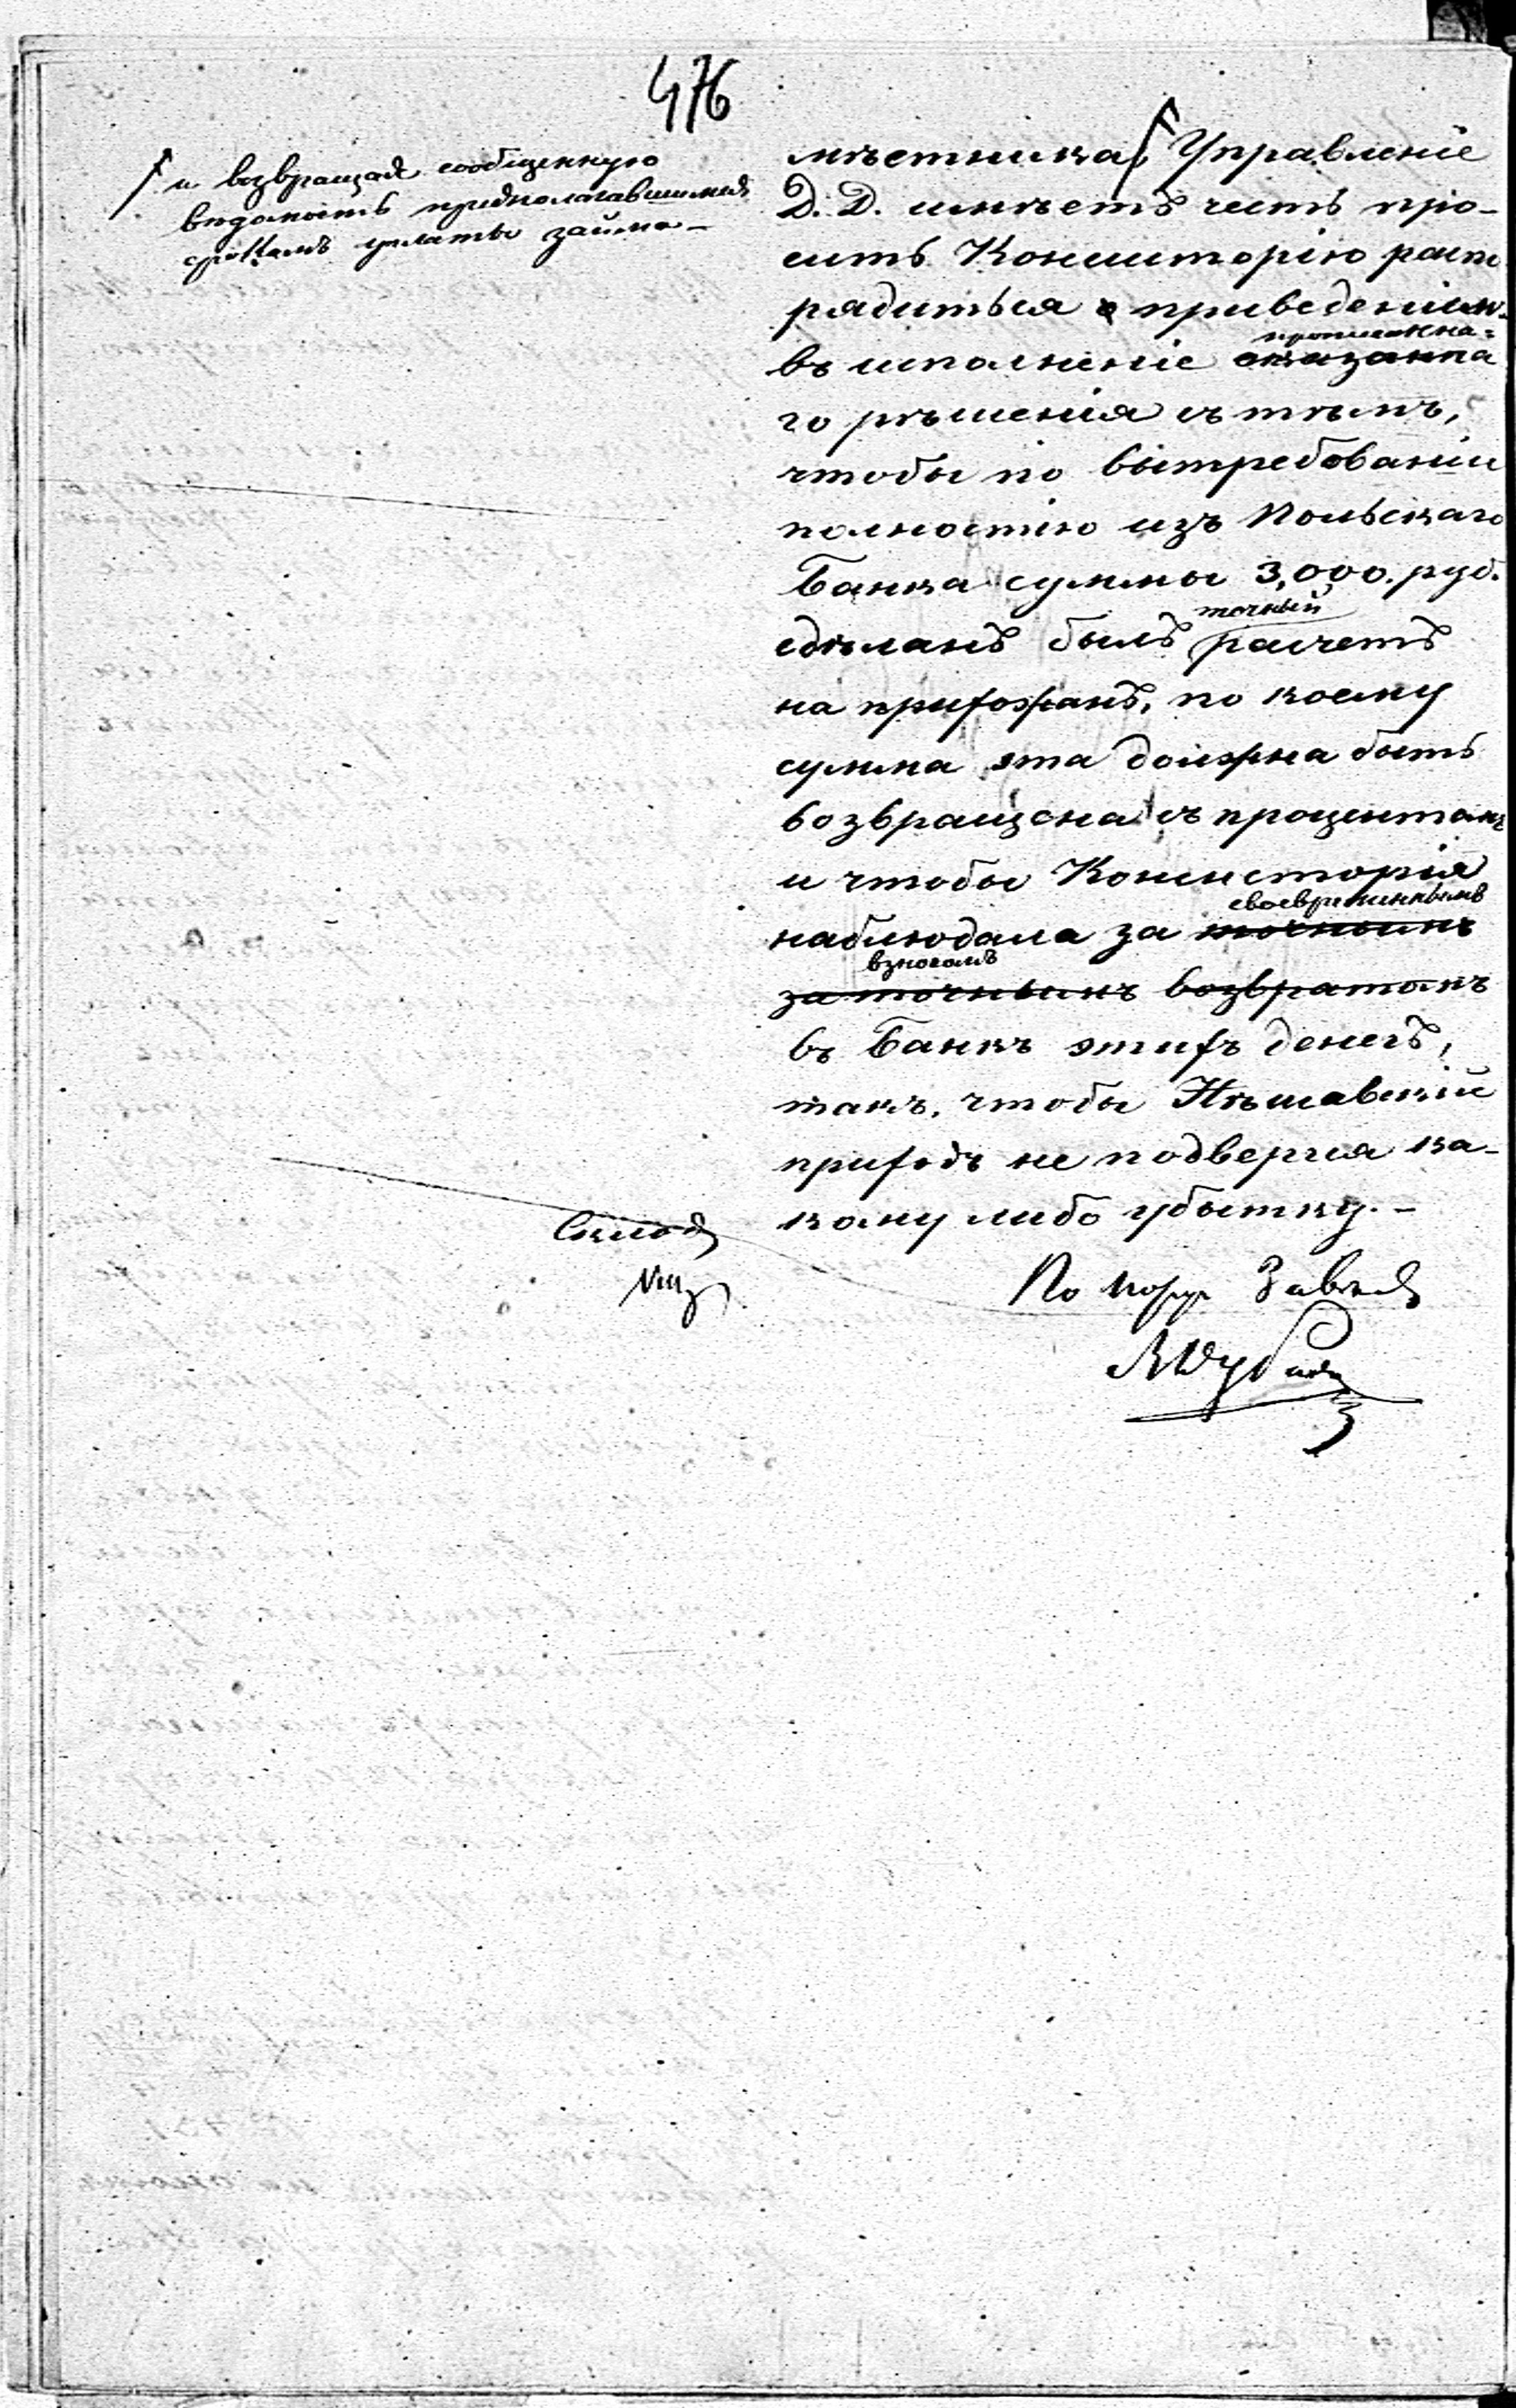 476
и возвращая сообщенную
вѣдомость предполагавшимся
срокамъ уплаты займа –
мѣстника, Управленіе
Д. Д. имѣетъ честь про-
сить Консисторію распо
рядиться о приведеніи
прописанна-
въ исполненіе сказанна
го рѣшенія съ тѣмъ,
чтобы по вытребованіи
полностію изъ Польскаго
Банка суммы 3,000. руб.
точный
сдѣланъ былъ расчетъ
на прихожанъ, по коему
сумма эта должна быть
возвращена съ процентами
и чтобы Консисторія
своевременнымъ
наблюдала за точнымъ
взносомъ
за точнымъ возвратомъ
въ Банкъ этихъ денегъ,
такъ, чтобы Нѣшавскій
приходъ не подвергся ка-
кому либо убытку. –
По